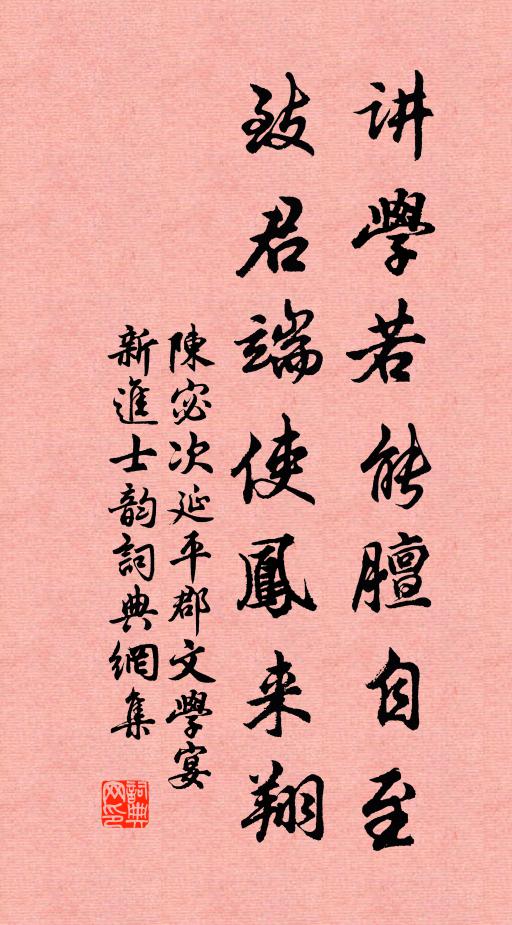 讲學若能膻自至
致君端使鳳来翔
陳宓次延平郡文學宴
新進士韵詞典網集
詞典网印